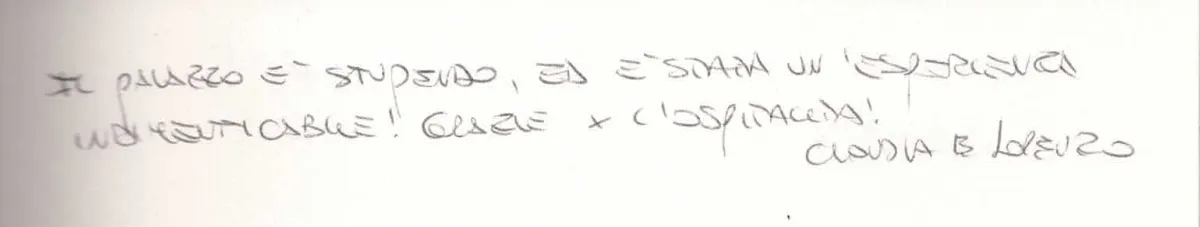 IL PALAZZO E' STUPENDO, ED E' STATA UN'ESPERIENZA
INDIMENTICABILE! GRAZIE X L'OSPITALITÀ!
CLAUDIA E LORENZO